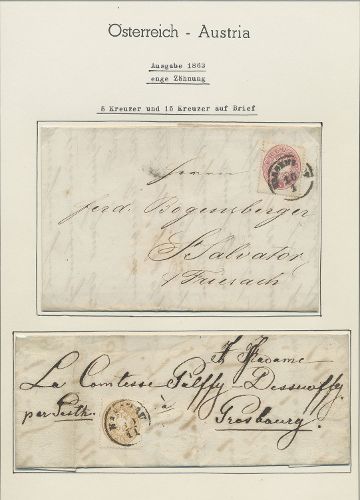 Österreich - Austria
Ausgabe 1863
enge Zähnung
5 Kreuzer und 15 Kreuzer auf Brief
Herrn
ferd. Bogensberger
St. Salvator
Friesach
A Madame
La Comtesse Pálffy-Dessewffy
par Pesth. à
Presbourg.